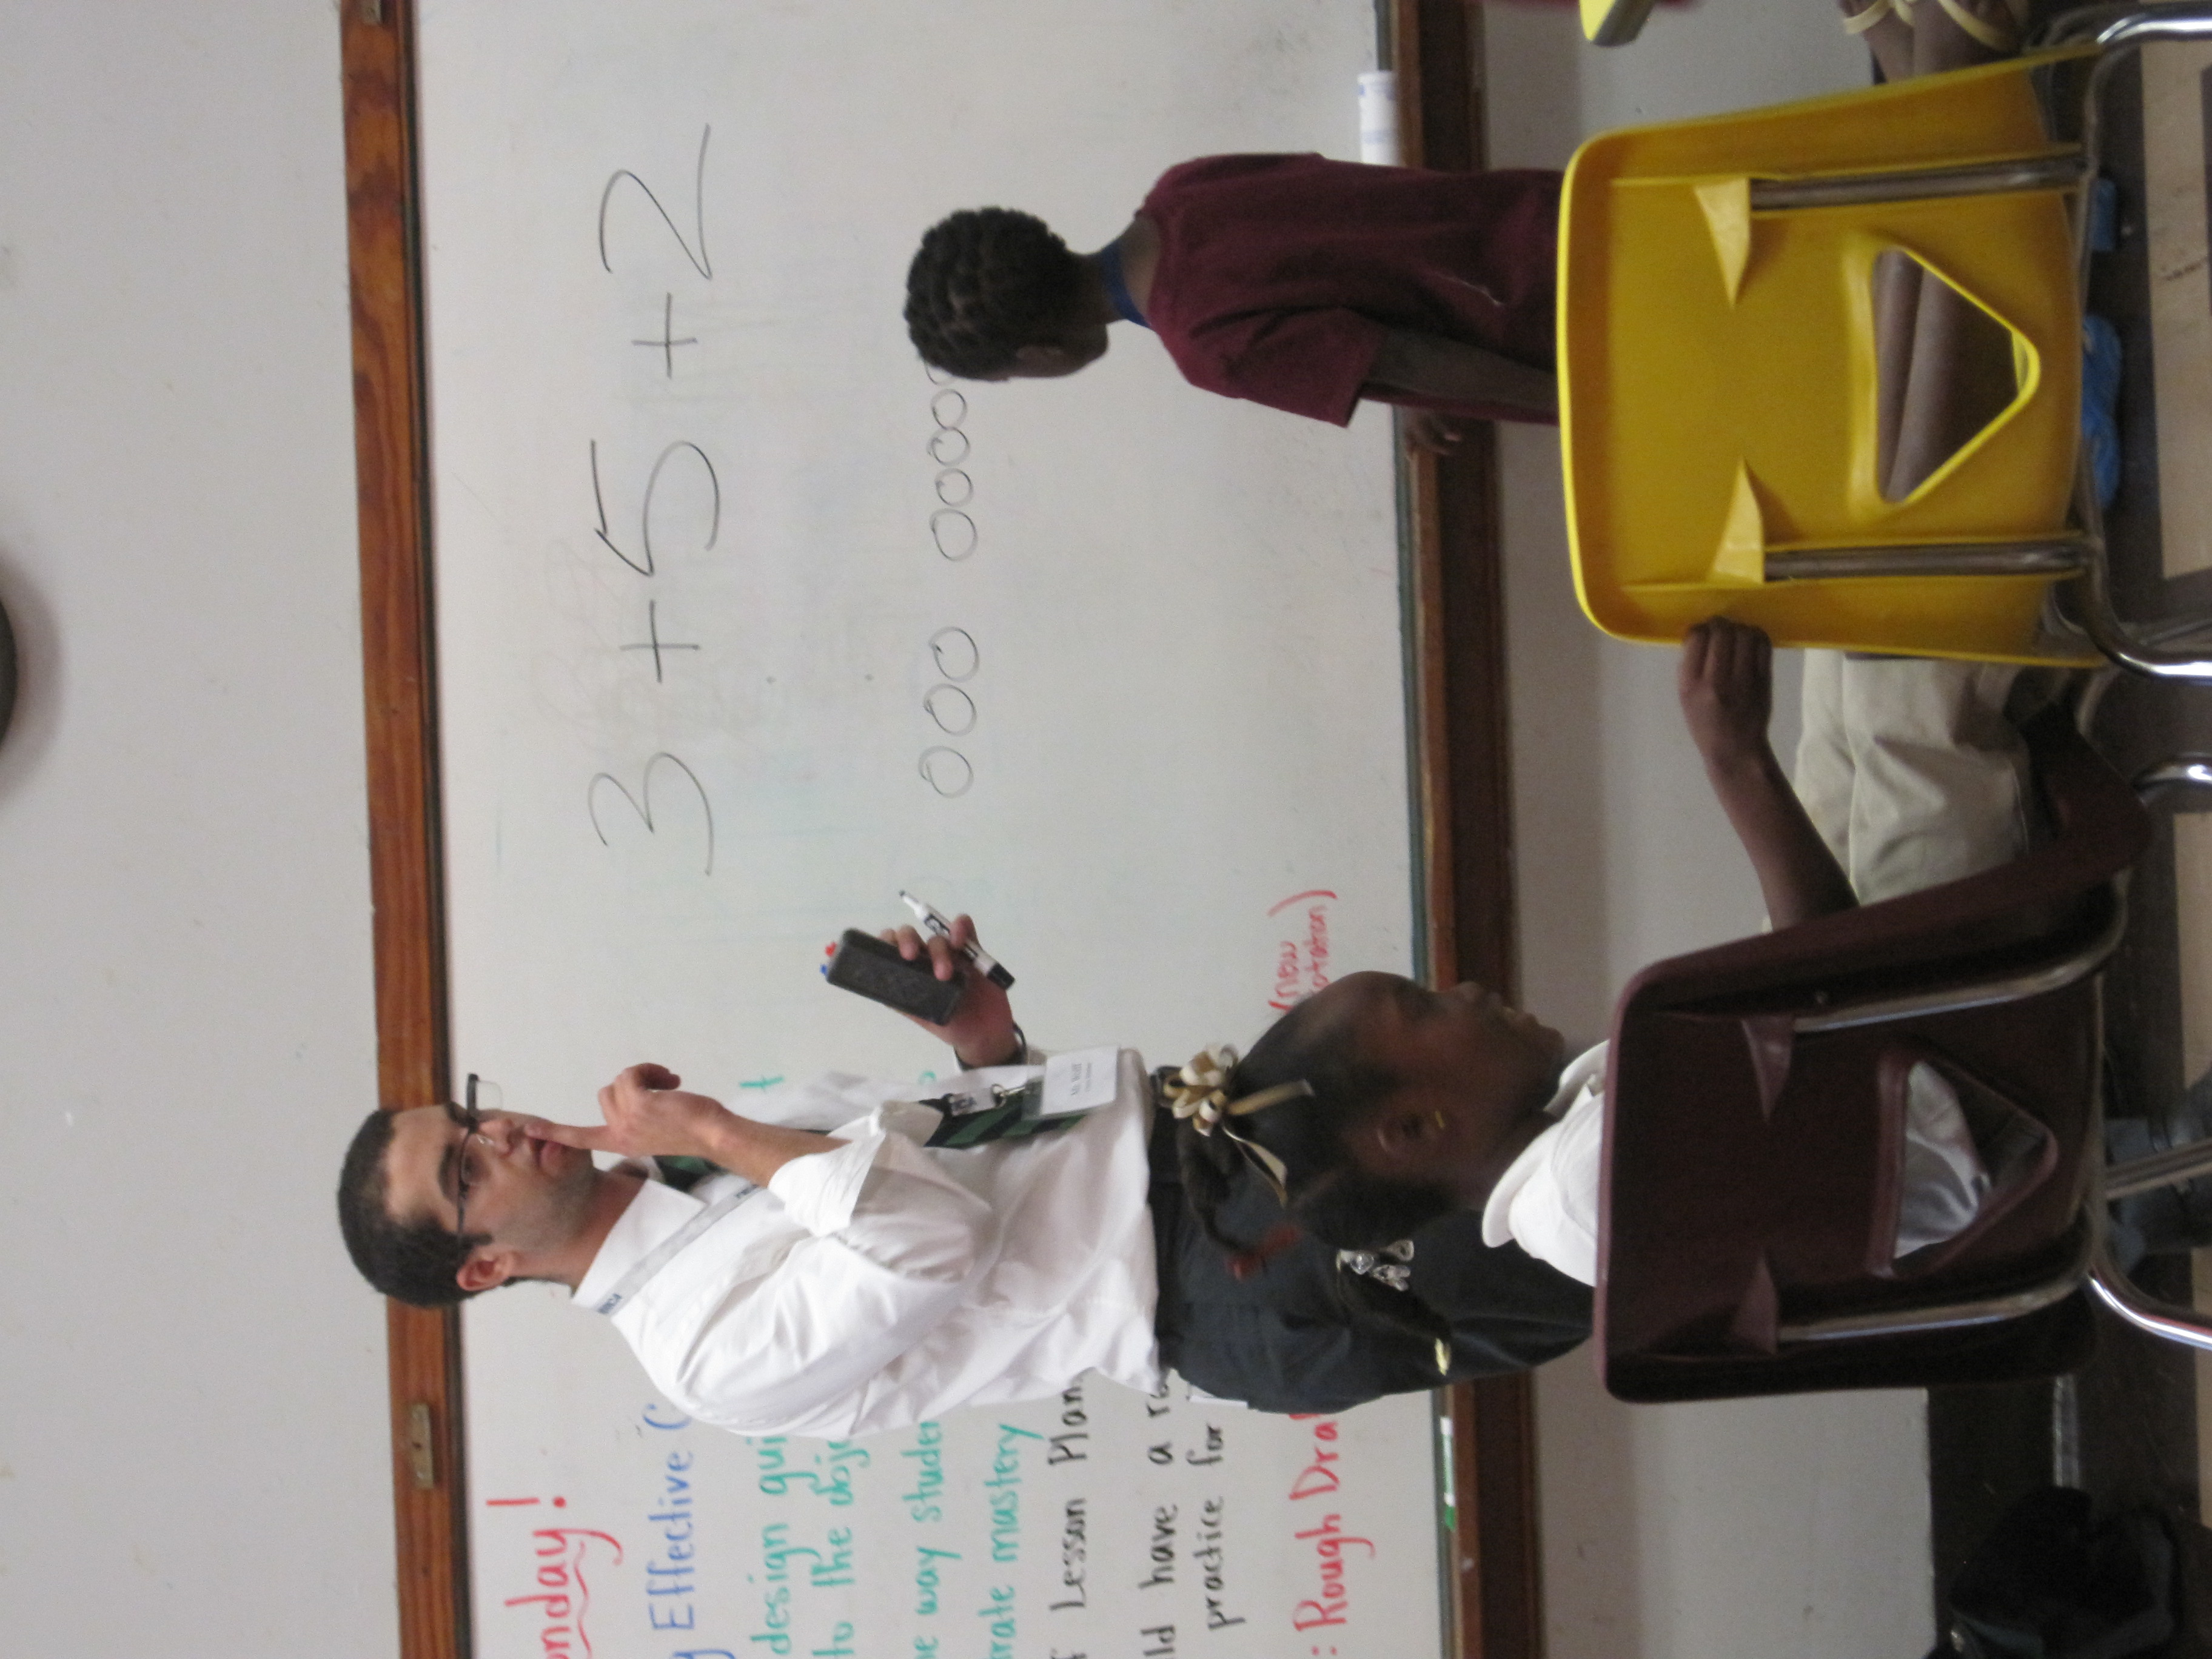 onday!
Effective C
design gui
t
to the obje
he way studen
trate mastery
f Lesson Plan
ld have a r
practice for
: Rough Draf
(new
otation)
3 + 5 + 2
Mr. Wolff